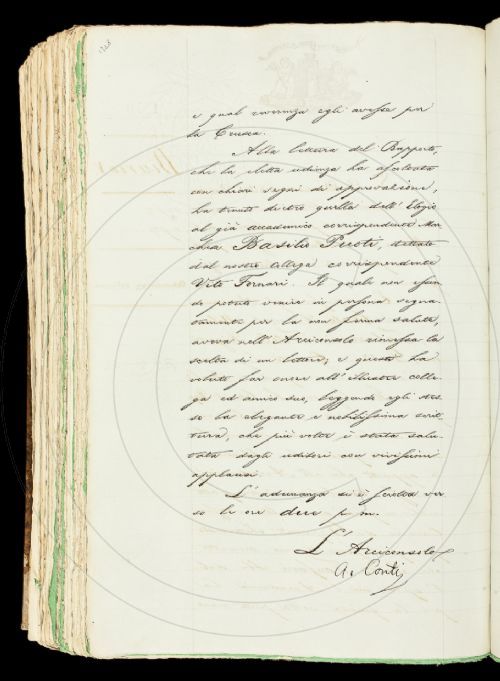 1728
e qual riverenza egli avesse per
la Crusca.
Alla lettura del Rapporto,
che la eletta udienza ha ascoltato
con chiari segni di approvazione,
ha tenuto dietro quella dell' Elogio
al già accademico corrispondente Mar
chese Basilio Puoti, dettato
dal nostro Collega corrispondente
Vito Fornari. Il quale non essen
do potuto venire in persona segna
tamente per la non ferma salute,
aveva nell' Arciconsolo rimessa la
scelta di un lettore; e questo ha
voluto far onore all' illustre colle-
ga ed amico suo, leggendo egli stes-
so la elegante e nobilissima scrit-
tura, che più volte è stata salu-
tata dagli uditori con vivissimi
applausi.
L' adunanza si è sciolta ver
so le ore due p. m.
L' Arciconsolo
A. Conti